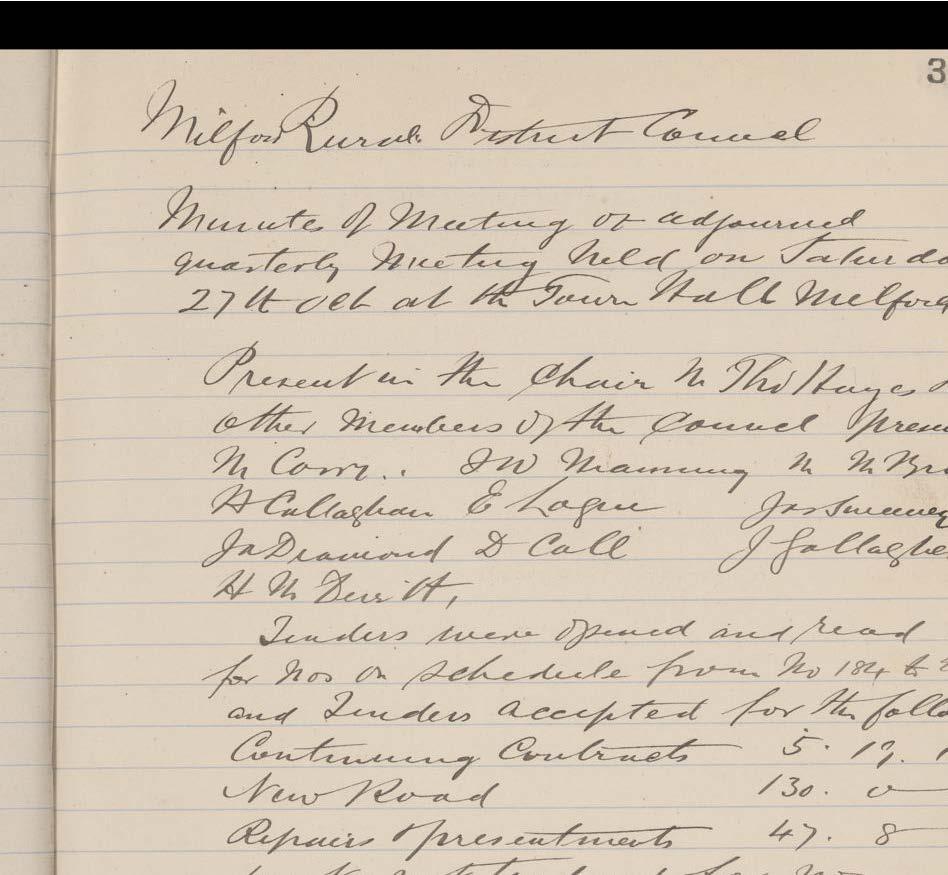 3
Milford Rural District Council
Minutes of Meeting of adjourned
quarterly Meeting held on Saturda
27th Oct at the Town Hall Milford
Present in the Chair Mr Thos Hayes
other Members of the Council presen
Mr Corry. J W Manning Mr M Br
H Callaghan E Logue Jas Sweeney
Ja Diamond D Coll J Gallaghe
H McDevitt,
Tenders were opened and read
for Nos on schedule from No 184 to
and Tenders accepted for the follo
Continuing Contracts 5. 19.
New Road 130. 0
Repairs & presentments 47. 8